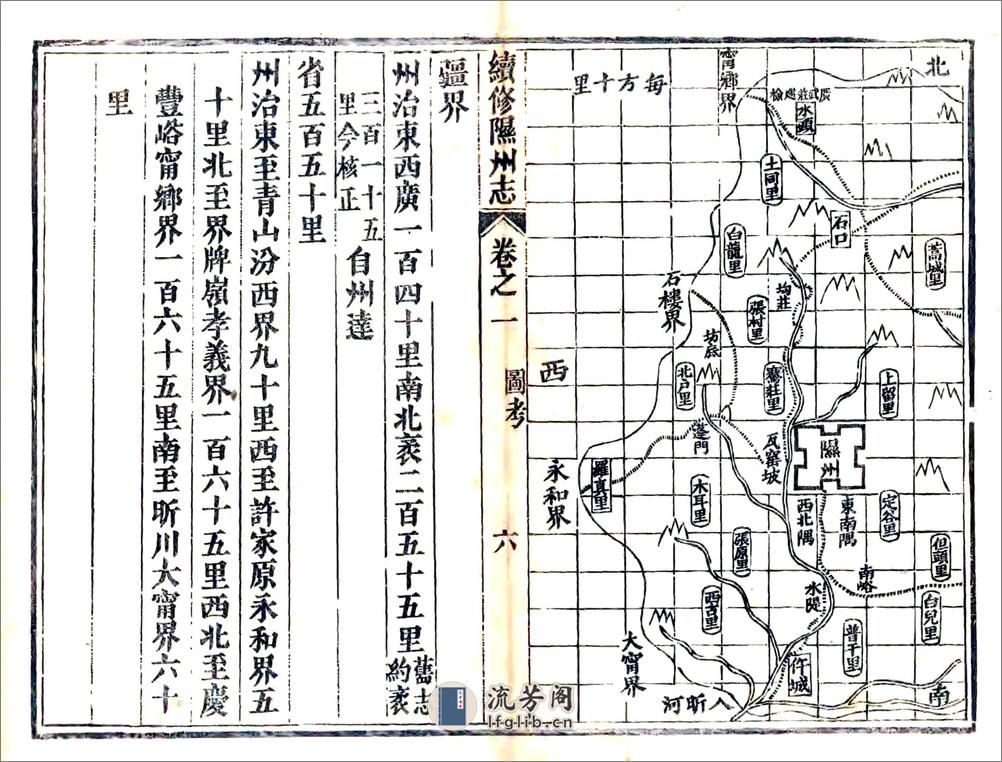 北
每方十里
甯鄉界
廣武莊巡檢
水頭
土同里
石口
蒿城里
白龍里
石樓界
均莊
張村里
坊底
西
北戸里
騫莊里
上留里
蓬門
瓦窰坡
隰州
永和界
羅真里
木耳里
西北隅
東南隅
定谷里
張原里
但頭里
南峪
西古里
水隄
普干里
白兒里
大甯界
仵城
南
入昕河
續修隰州志
卷之一
圖考
六
疆界
州治東西廣一百四十里南北袤二百五十五里舊志約袤
三百一十五里今核正自州達
省五百五十里
州治東至青山汾西界九十里西至許家原永和界五
十里北至界牌嶺孝義界一百六十五里西北至慶
豐峪甯鄉界一百六十五里南至昕川大甯界六十
里
流芳阁
lfglib.cn